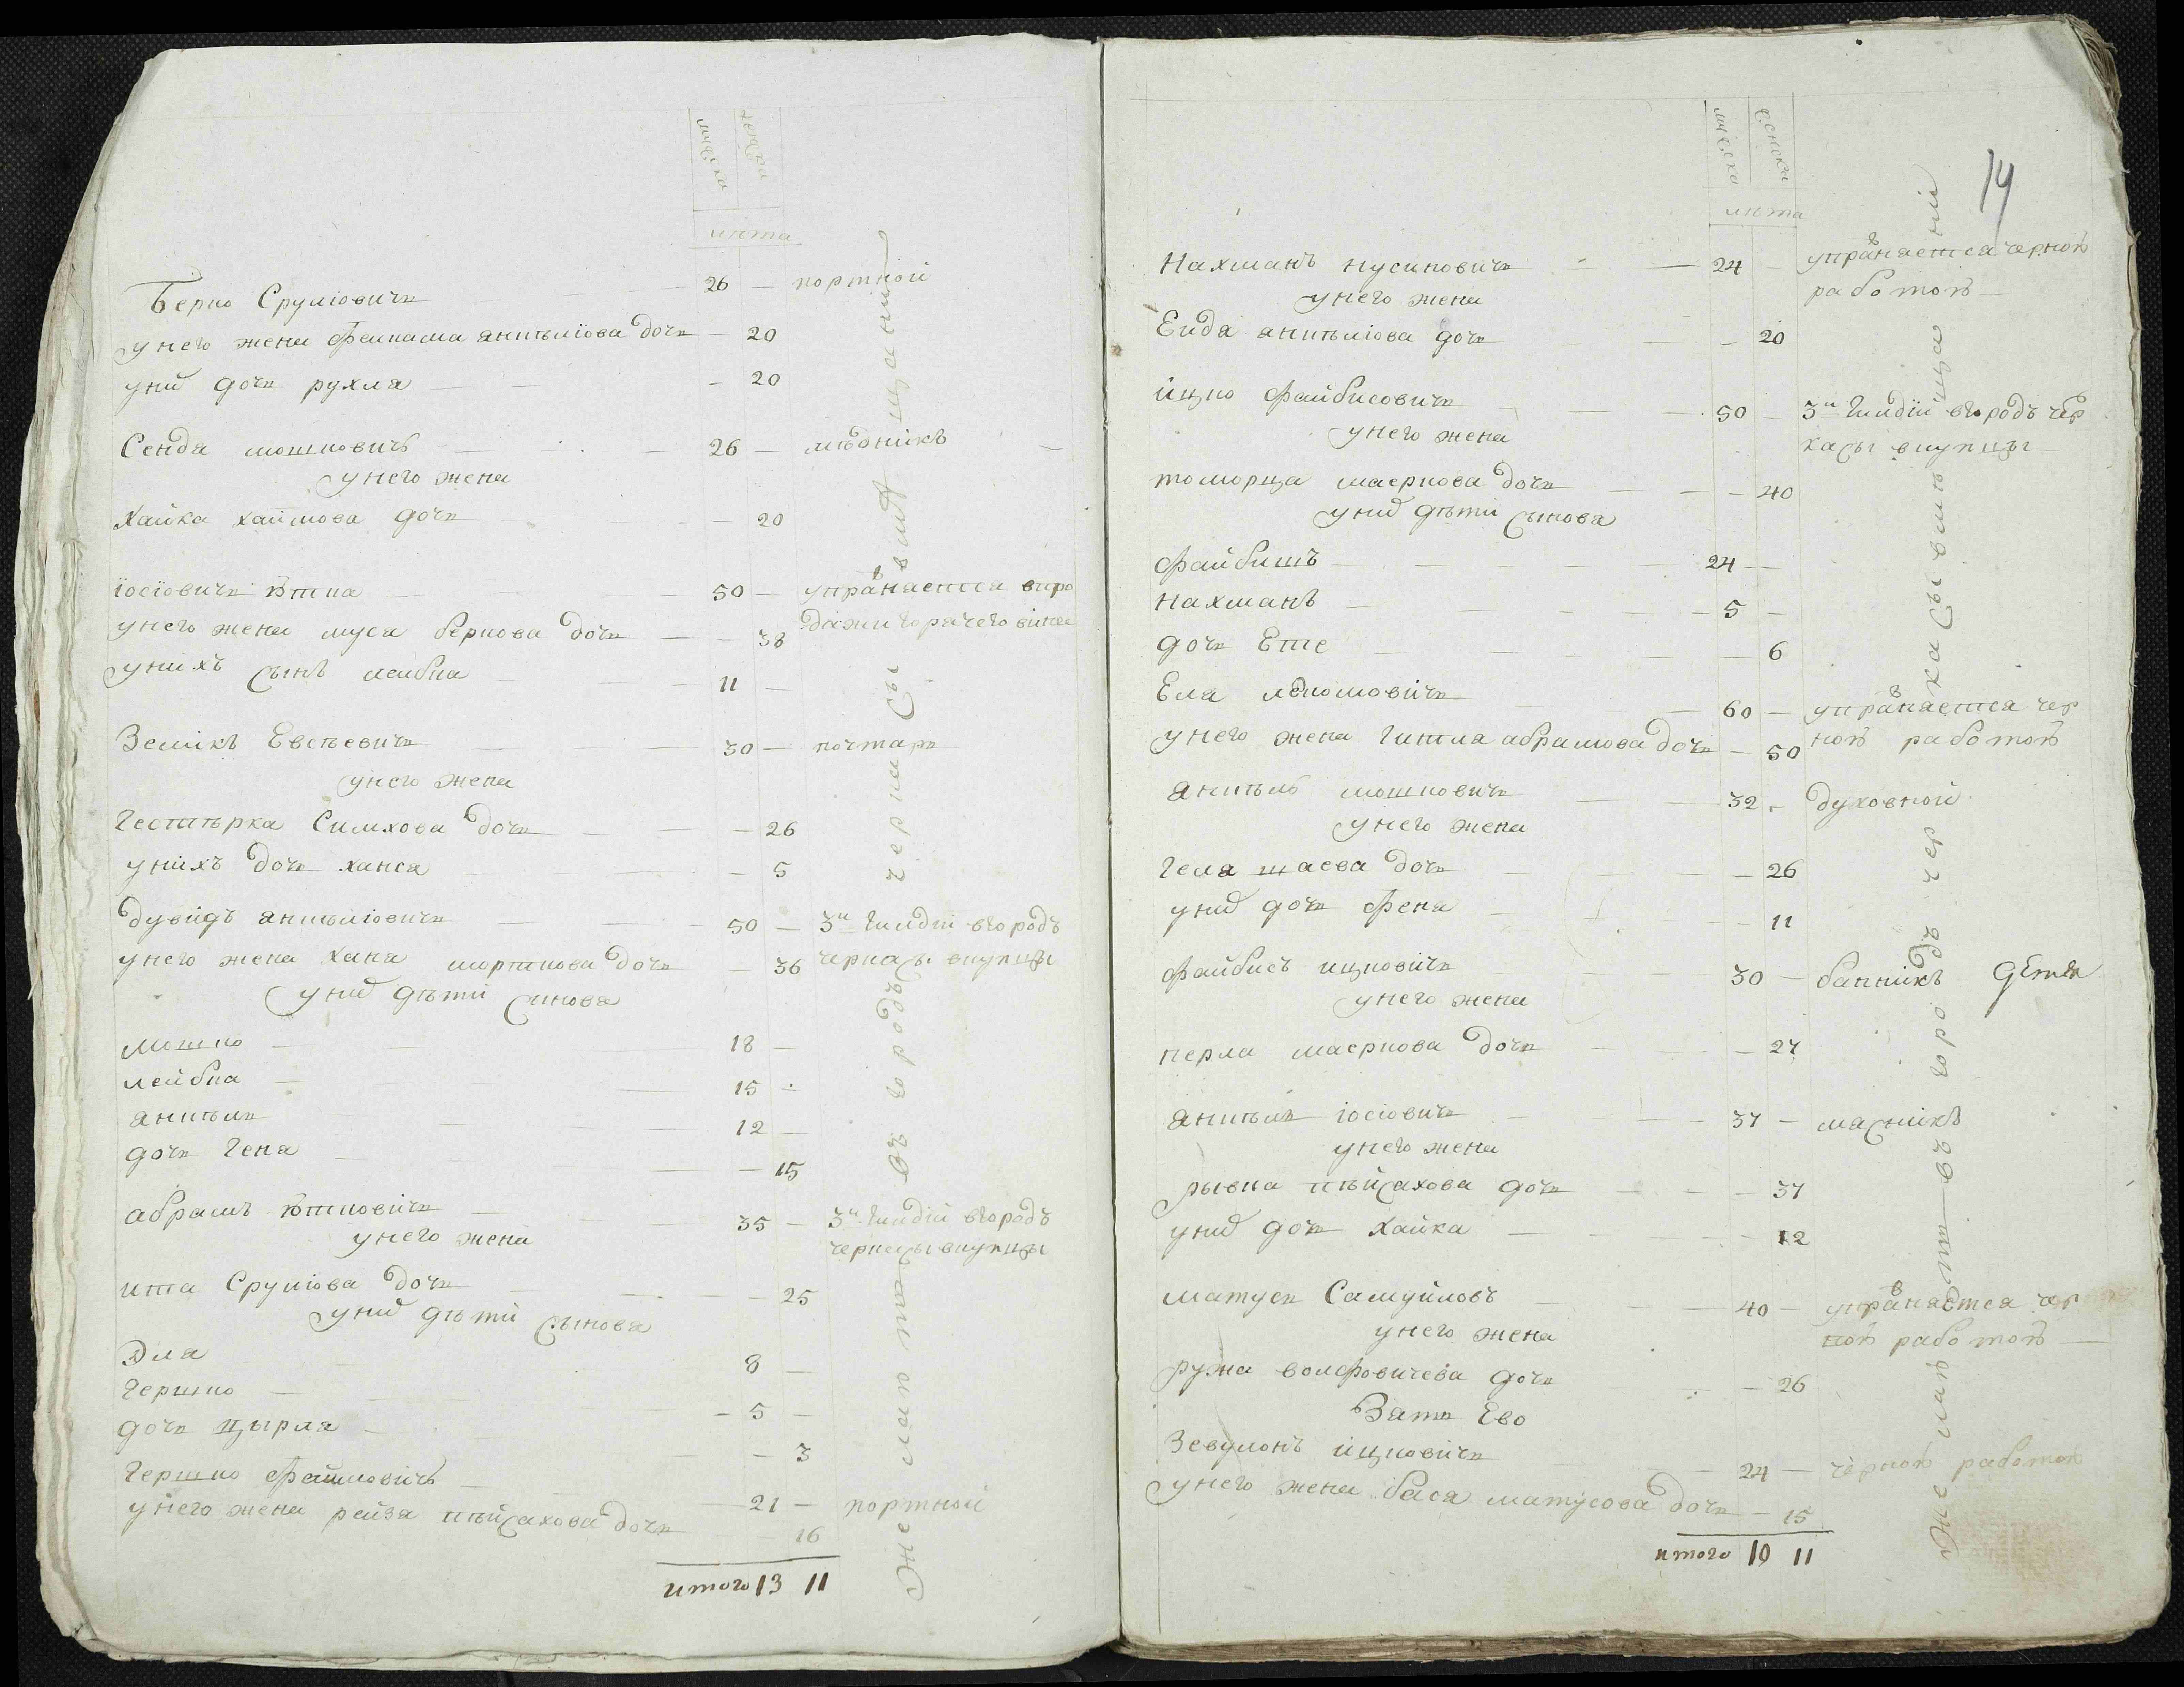 мужеска
женска
лѣта
Берко Срулiовичь — 26 — портнïй
у него жена Фейгама аншелïова дочь — 20
у них дочь рухля — 20
Сендя мошковичь — 26 — мѣдникъ
у него жена
Хайка хаимова дочь — 20
iосiовичь iтка — 50 — упражняется впро
у него жена муся беркова дочь — 38 дажи горячего вина
у нихъ сынъ лейбка — 11 —
Зеликъ Евсѣевичь — 30 — почтарь
у него жена
Гестѣрка Симхова дочь — 26
у нихъ дочь ханся — 5
дувидъ аншелiовичь — 50 — 3й гилдïи вгородѣ
у него жена Хана морткова дочь — 36 черкасы вкупцы
у них дѣти синовя
мошко — 18 —
лейбка — 15 -
аншель — 12 —
дочь геня — 15
абрамъ iтковичь — 35 — 3й гилдïи вгородѣ
у него жена черкасы вкупцы
ита Срулïова дочь — 25
у них дѣти сынова
Эля — 8 —
гершко — 5 —
дочь цырля — 3
гершко Феймовичь — 21 — портнïй
у него жена рейзя пейсахова дочь — 16
итого 13 11
желают въ городѣ черкасы в мещании
14
мужеска
женска
лѣта
Нахманъ нусиновичь — 24 — упражняется черной
у него жена работой —
Еидя аншелiова дочь — 20
ицко Файбисовичь — 50 — 3й гилдïи вгородѣ чер
у него жена касы вкупцы —
томорца маеркова дочь — 40
у них дѣти сынова
Файбишъ — 24 —
Нахманъ — 5 —
дочь Ете — 6
Еля лейомовичь — 60 — упражняется чер
у него жена гитля абрамова дочь — 50 ной работой
аншель мошковичь — 32 - духовной
у него жена
геля шаева дочь — 26
у них дочь Феня — 11
Файбисъ ицковичь — 30 — банникъ
у него жена
перла маеркова дочь — 27
аншель iосiовичь — 37 — мясникъ
у него жена
рывка пейсахова дочь — 37
у них дочь Хайка — 12
матусь Самуйловъ — 40 — упражняется чер
у него жена ной работой —
ружа волфовичева дочь — 26
Зять Ево
Зевулонъ ицковичь — 24 — черной работой
у него жена бася матусова дочь — 15
итого 10 11
желают въ городѣ черкасы в мещании